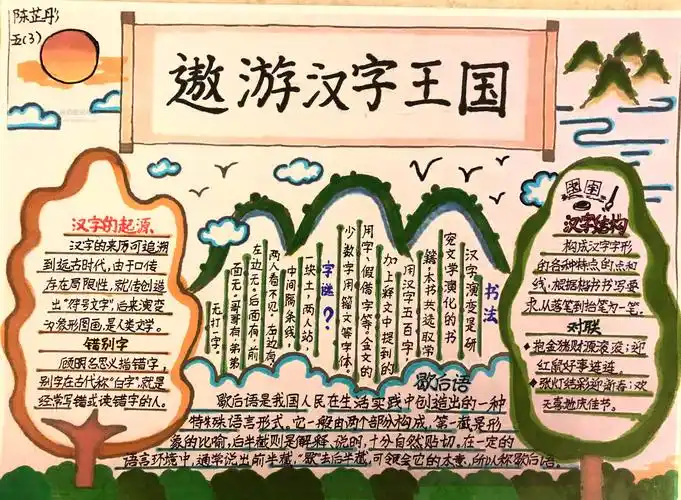 陈芷彤
五(3)
遨游汉字王国
汉字的起源
汉字的来历可追溯
到远古时代,由于口传
存在局限性,就传创造
出"符号文字",后来演变
为象形图画,是人类文学。
错别字
顾明名思义指错字,
别字在古代称"白字",就是
经常写错或读错字的人。
书法
汉字演变是研
究文学演化的书
籍,本书共选取常
用汉字五百字
加上释文中提到的
用字、假借字等。金文的
少数字用籀文等字体,
字谜?
一块土,两人站,
中间隔条线,
两人看不见,右边有
左边无,后面有,前
面无,哥哥有,弟弟
无打一字。
汉字结构
构成汉字字形
的各种特点的点和
线,根据楷书书写要
求,从落笔到抬笔为一笔。
对联
抱金猪财源滚滚;迎
红鼠好事连连。
张灯结彩迎新春;欢
天喜地庆佳节。
歇后语
歇后语是我国人民在生活实践中创造出的一种
特殊语言形式。它一般由两个部分构成,第一截是形
象的比喻,后半截则是解释、说明,十分自然贴切。在一定的
语言环境中,通常说出前半截,"歇"去后半截,可领会它的本意,所以称歇后语。